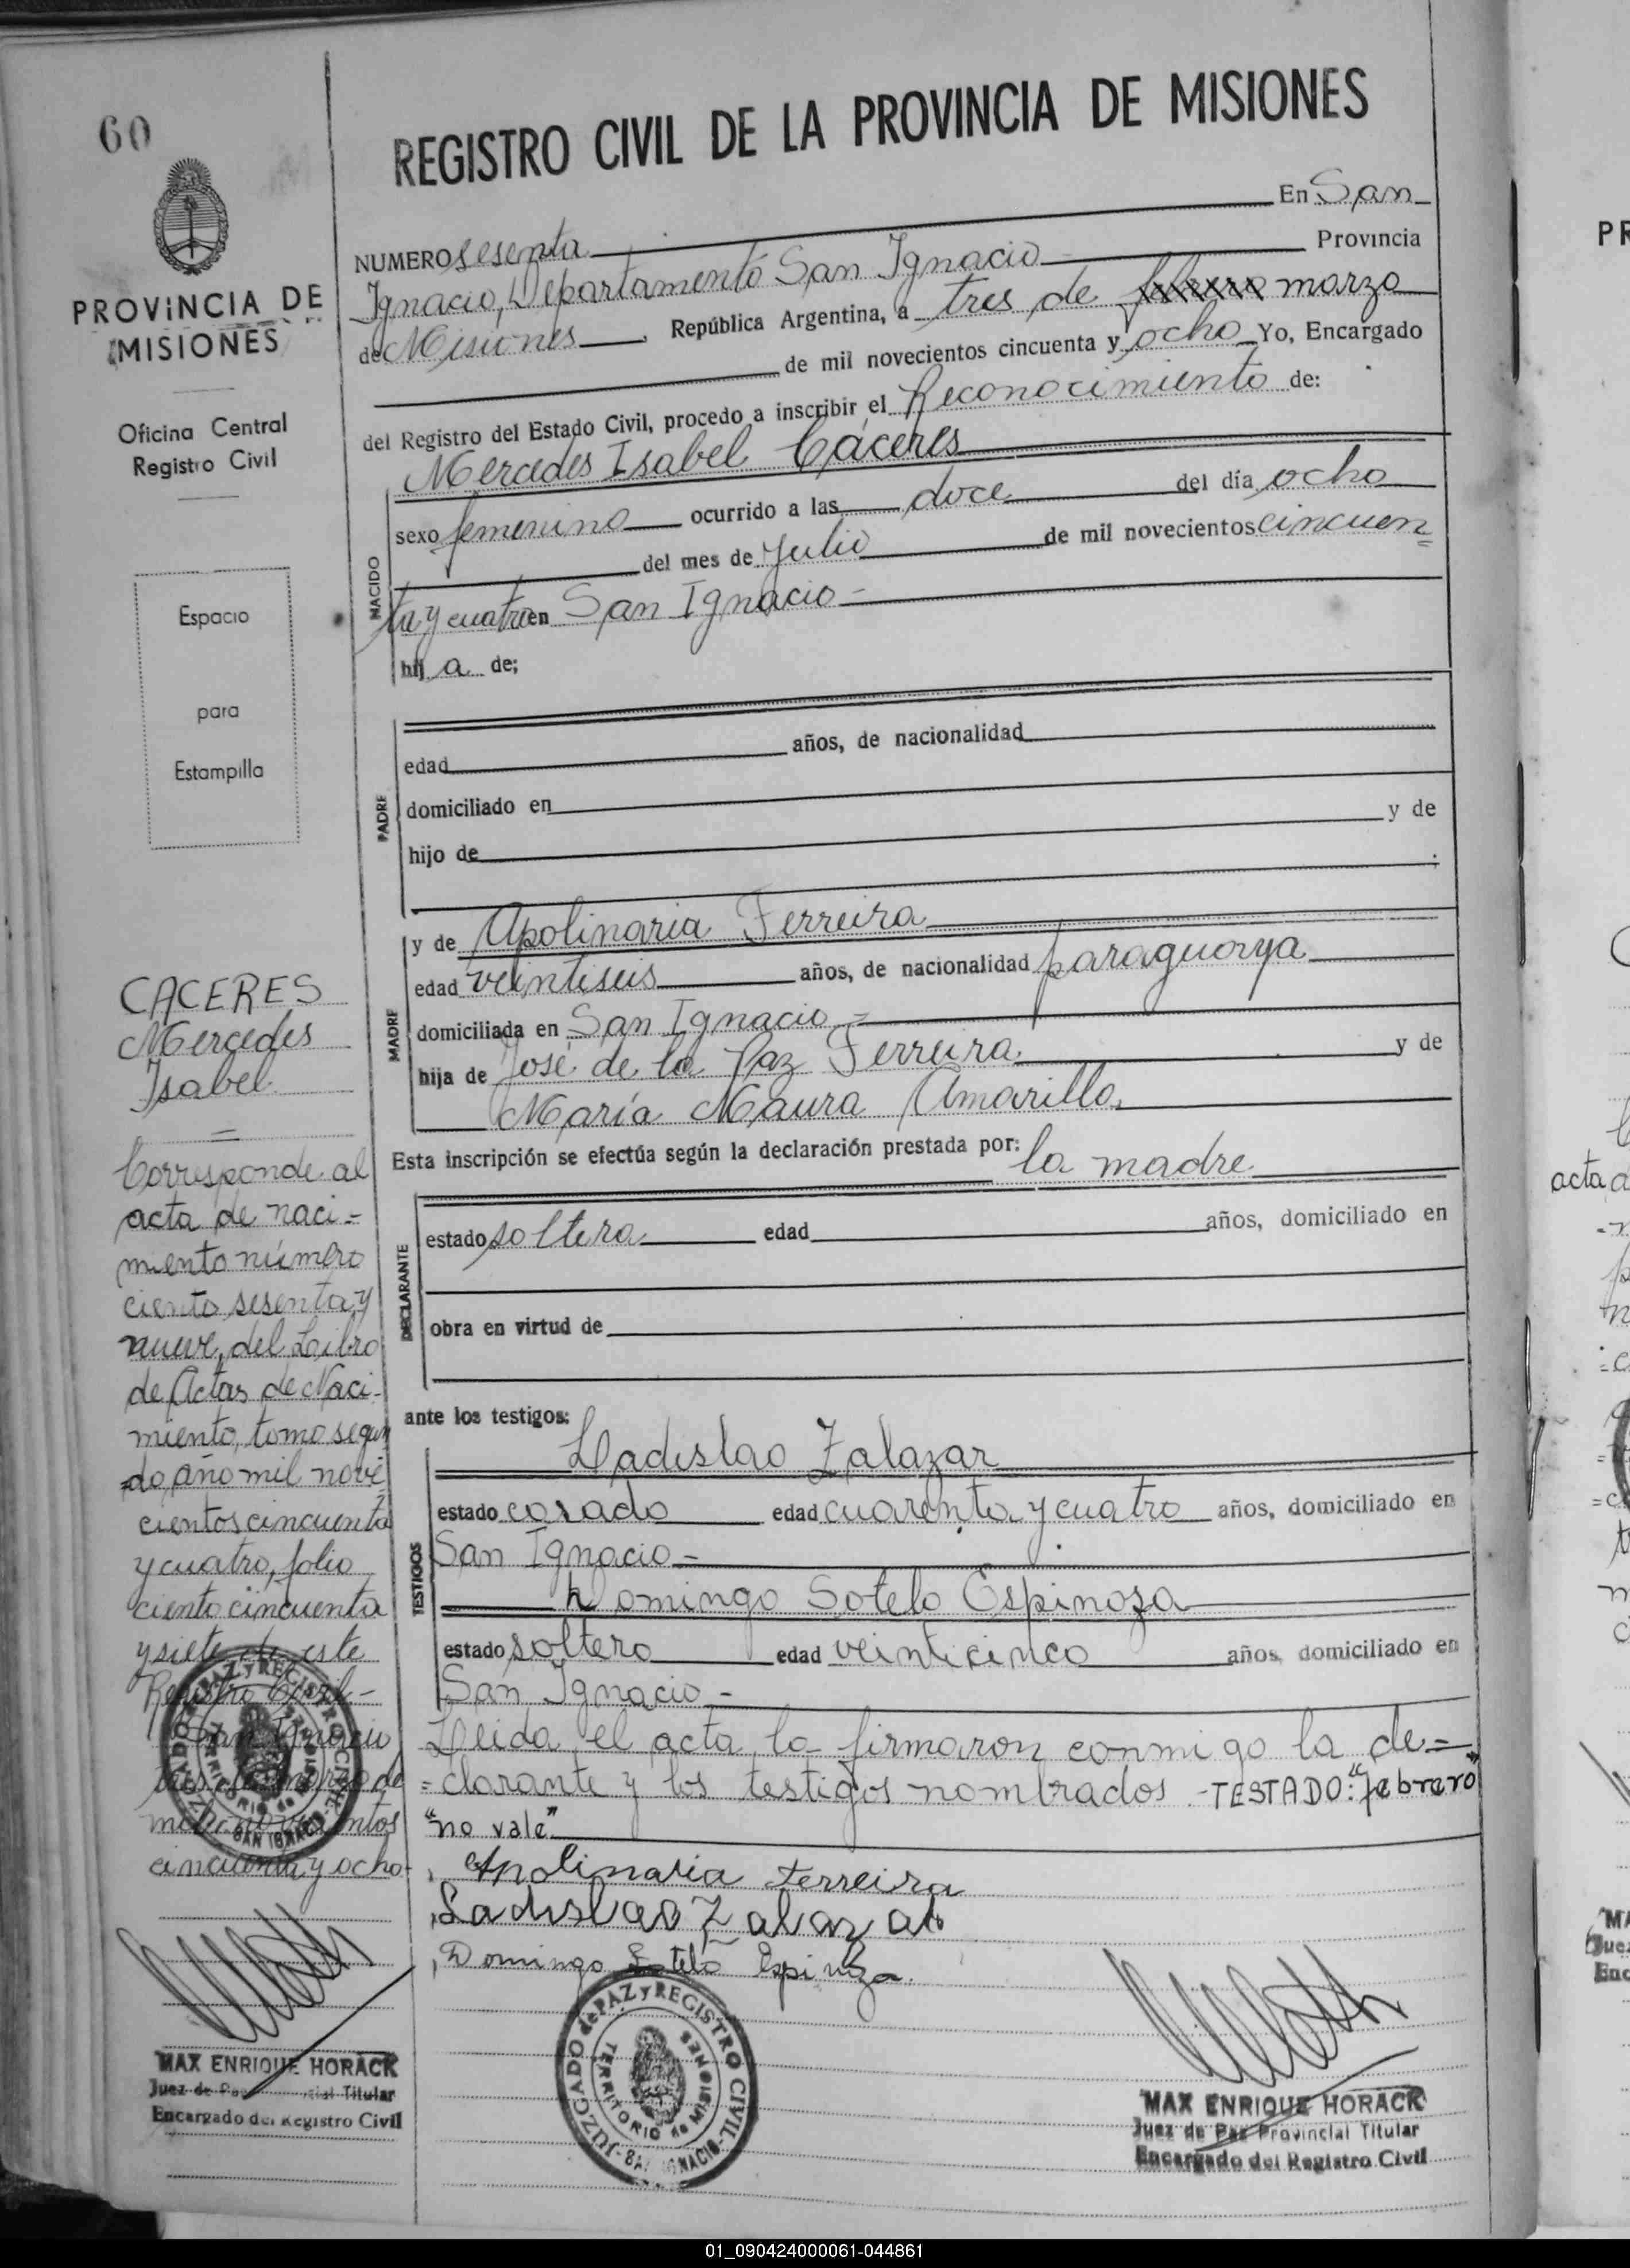 60
PROVINCIA DE
MISIONES
Oficina Central
Registro Civil
Espacio
para
Estampilla
CACERES
Mercedes
Isabel
Corresponde al
acta de naci-
miento número
ciento sesenta y
nueve, del Libro
de Actas de Naci-
miento, tomo segun
=do, año mil nove
cientos cincuenta
y cuatro, folio
ciento cincuenta
y siete de este
Registro Civil-
San Ignacio
tres de marzo de
mil novecientos
cincuenta y ocho-
MAX ENRIQUE HORACK
Juez de Titular
Encargado del Registro Civil
REGISTRO CIVIL DE LA PROVINCIA DE MISIONES
NUMERO sesenta En San
Ignacio, Departamento San Ignacio Provincia
de Misiones, República Argentina, a tres de febrero marzo
de mil novecientos cincuenta y ocho Yo, Encargado
del Registro del Estado Civil, procedo a inscribir el Reconocimiento de:
Mercedes Isabel Cáceres
NACIDO
sexo femenino ocurrido a las doce del día ocho
del mes de Julio de mil novecientos cincuen
ta y cuatro en San Ignacio-
hij a de;
PADRE
edad años, de nacionalidad
domiciliado en
hijo de y de
MADRE
y de Apolinaria Ferreira
edad veintiseis años, de nacionalidad paraguaya
domiciliada en San Ignacio
hija de José de la Paz Ferreira y de
María Maura Amarilla
Esta inscripción se efectúa según la declaración prestada por: la madre
DECLARANTE
estado soltera edad años, domiciliado en
obra en virtud de
ante los testigos:
TESTIGOS
Ladislao Zalazar
estado casado edad cuarenta y cuatro años, domiciliado en
San Ignacio-
Domingo Sotelo Espinoza
estado soltero edad veinticinco años, domiciliado en
San Ignacio-
Leida el acta, la firmaron conmigo la de=
=clarante y los testigos nombrados.-TESTADO:"febrero"
"no vale"
Apolinaria Ferreira
Ladislao Zalazar
Domingo Sotelo Espinoza.
JUZGADO de PAZ y REGISTRO CIVIL - SAN IGNACIO -
TERRITORIO de MISIONES
MAX ENRIQUE HORACK
Juez de Paz Provincial Titular
Encargado del Registro Civil
01_090424000061-044861